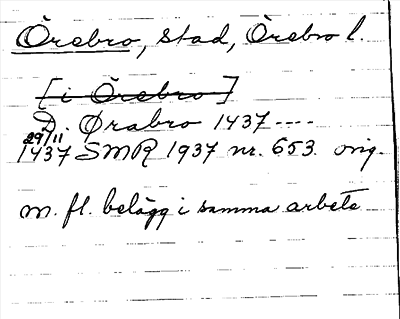 Örebro, stad, Örebro l.
[i Örebro]
D. Ørabro 1437 ----
29/11
1437 SMR 1937 nr. 653. orig.
m. fl. belägg i samma arbete